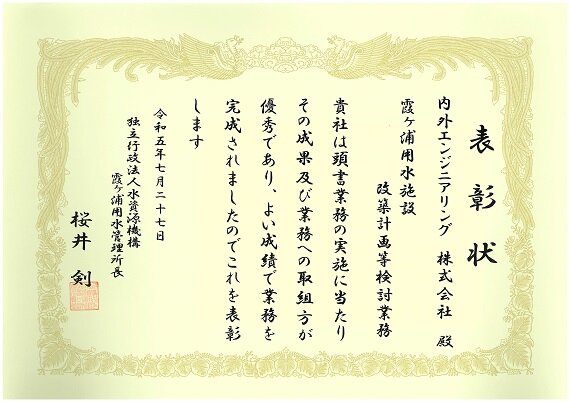 表彰状
内外エンジニアリング 株式会社 殿
霞ヶ浦用水施設
改築計画等検討業務
貴社は頭書業務の実施に当たり
その成果及び業務への取組方が
優秀であり、よい成績で業務を
完成されましたのでこれを表彰
します
令和五年七月二十七日
独立行政法人水資源機構
霞ヶ浦用水管理所長
桜井 剣